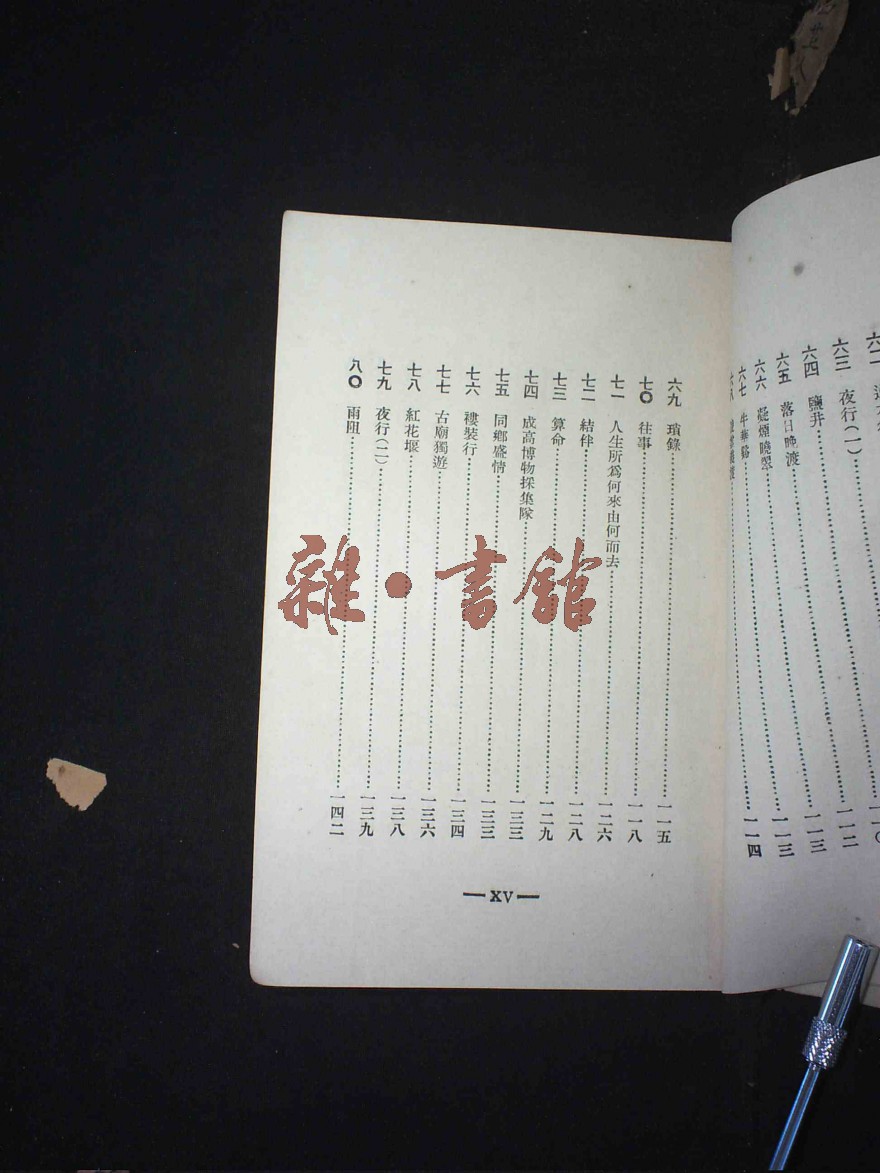 六三 夜行(一)……一一二
六四 鹽井……一一三
六五 落日晚渡……一一三
六六 凝煙曉翠
六七 牛華谿……一一四
六九 瑣錄……一一五
七〇 往事……一一八
七一 人生所爲何來由何而去……一二六
七二 結伴……一二八
七三 算命……一二九
七四 成高博物採集隊……一三三
七五 同鄉盛情……一三三
七六 褸裝行……一三四
七七 古廟獨遊……一三六
七八 紅花堰……一三八
七九 夜行(二)……一三九
八〇 雨阻……一四二
—XV—
雜·書館